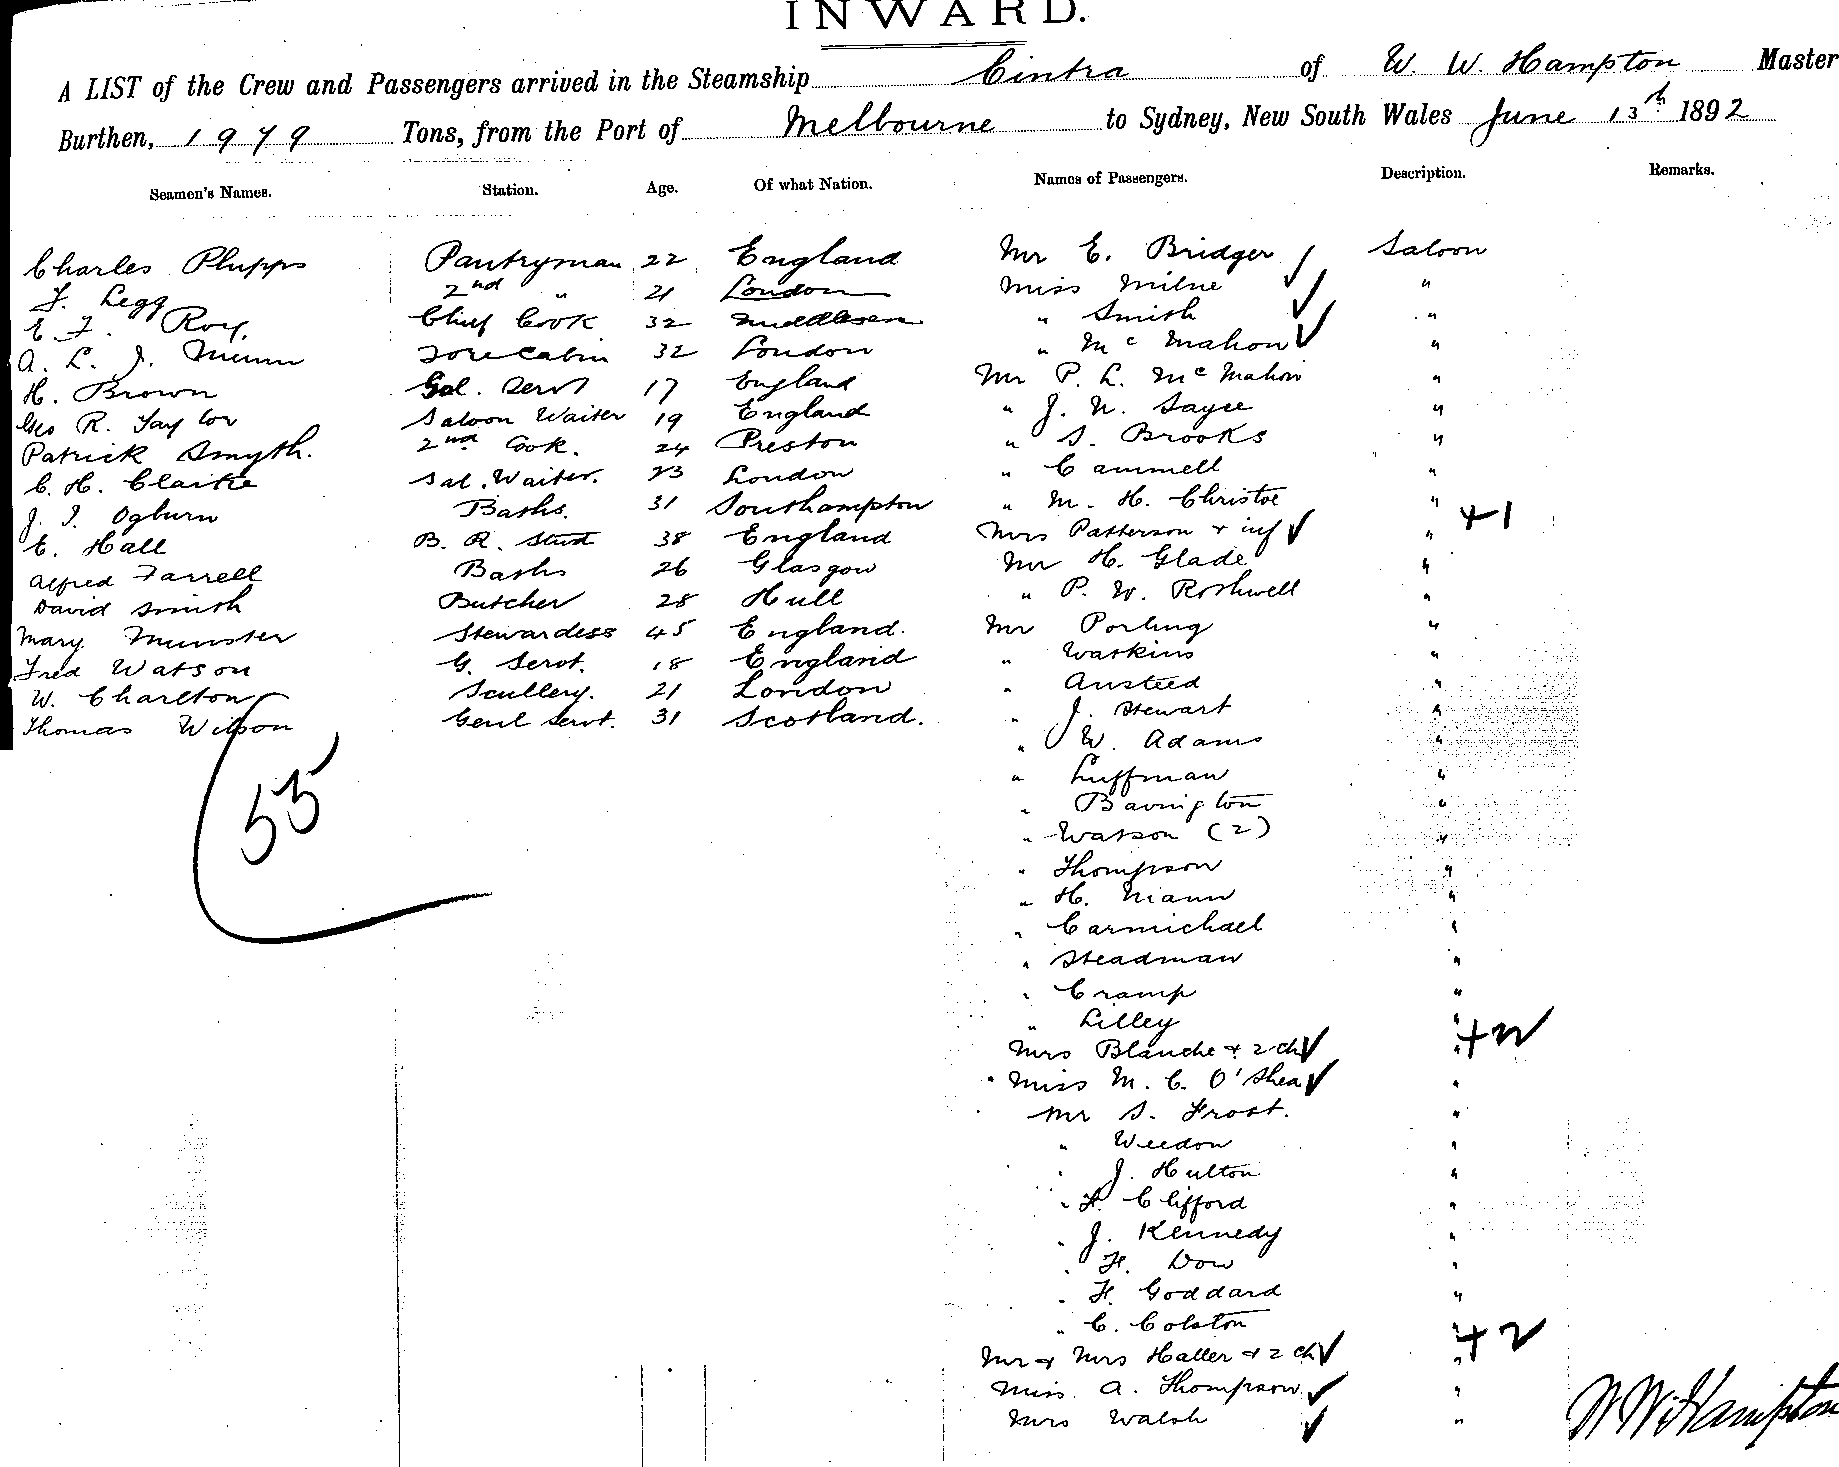 INWARD.
A LIST of the Crew and Passengers arrived in the Steamship Cintra of W. W. Hampton Master
Burthen, 1979 Tons, from the Port of Melbourne to Sydney, New South Wales June 13th 1892
Seamen's Names. Station. Age. Of what Nation. Names of Passengers. Description. Remarks.
Charles Phipps Pantryman 22 England Mr E. Bridger Saloon
F. Legg 2nd " 21 London Miss Milne "
E. F. Roy. Chief Cook 32 Middlesex " Smith "
A. L. J. Munn Forecabin 32 London " Mc Mahon "
H. Brown Gel. Servt 17 England Mr P. L. Mc Mahon "
Geo R. Taylor Saloon Waiter 19 England " J. N. Sayce "
Patrick Smyth. 2nd Cook. 24 Preston " S. Brooks "
C. H. Clarke Sal. Waiter. 23 London " Cammell "
J. I. Ogburn Baths. 31 Southampton " M. H. Christoe "
E. Hall B. R. Stwd 38 England Mrs Patterson + inf " +1
Alfred Farrell Baths 26 Glasgow Mr H. Glade "
David Smith Butcher 28 Hull " P. W. Rothwell "
Mary Munster Stewardess 45 England. Mr Porling "
Fred Watson G. Servt. 18 England " Watkins "
W. Charlton Scullery. 21 London " Austeed "
Thomas Wilson Genl Servt. 31 Scotland. " J. Stewart "
" W. Adams "
55
" Luffman "
" Bavington "
" Watson (2) "
" Thompson "
" H. Mann "
" Carmichael "
" Steadman "
" Cramp "
" Lilley "
Mrs Blanche + 2 ch " +2
" Miss M. C. O'Shea "
Mr S. Frost. "
" Weedon "
" J. Hulton "
" F. Clifford "
" J. Kennedy "
" H. Dow "
" H. Goddard "
" C. Colston "
Mr + Mrs Haller + 2 ch " +2
Miss A. Thompson "
Mrs Walsh "
W W Hampton